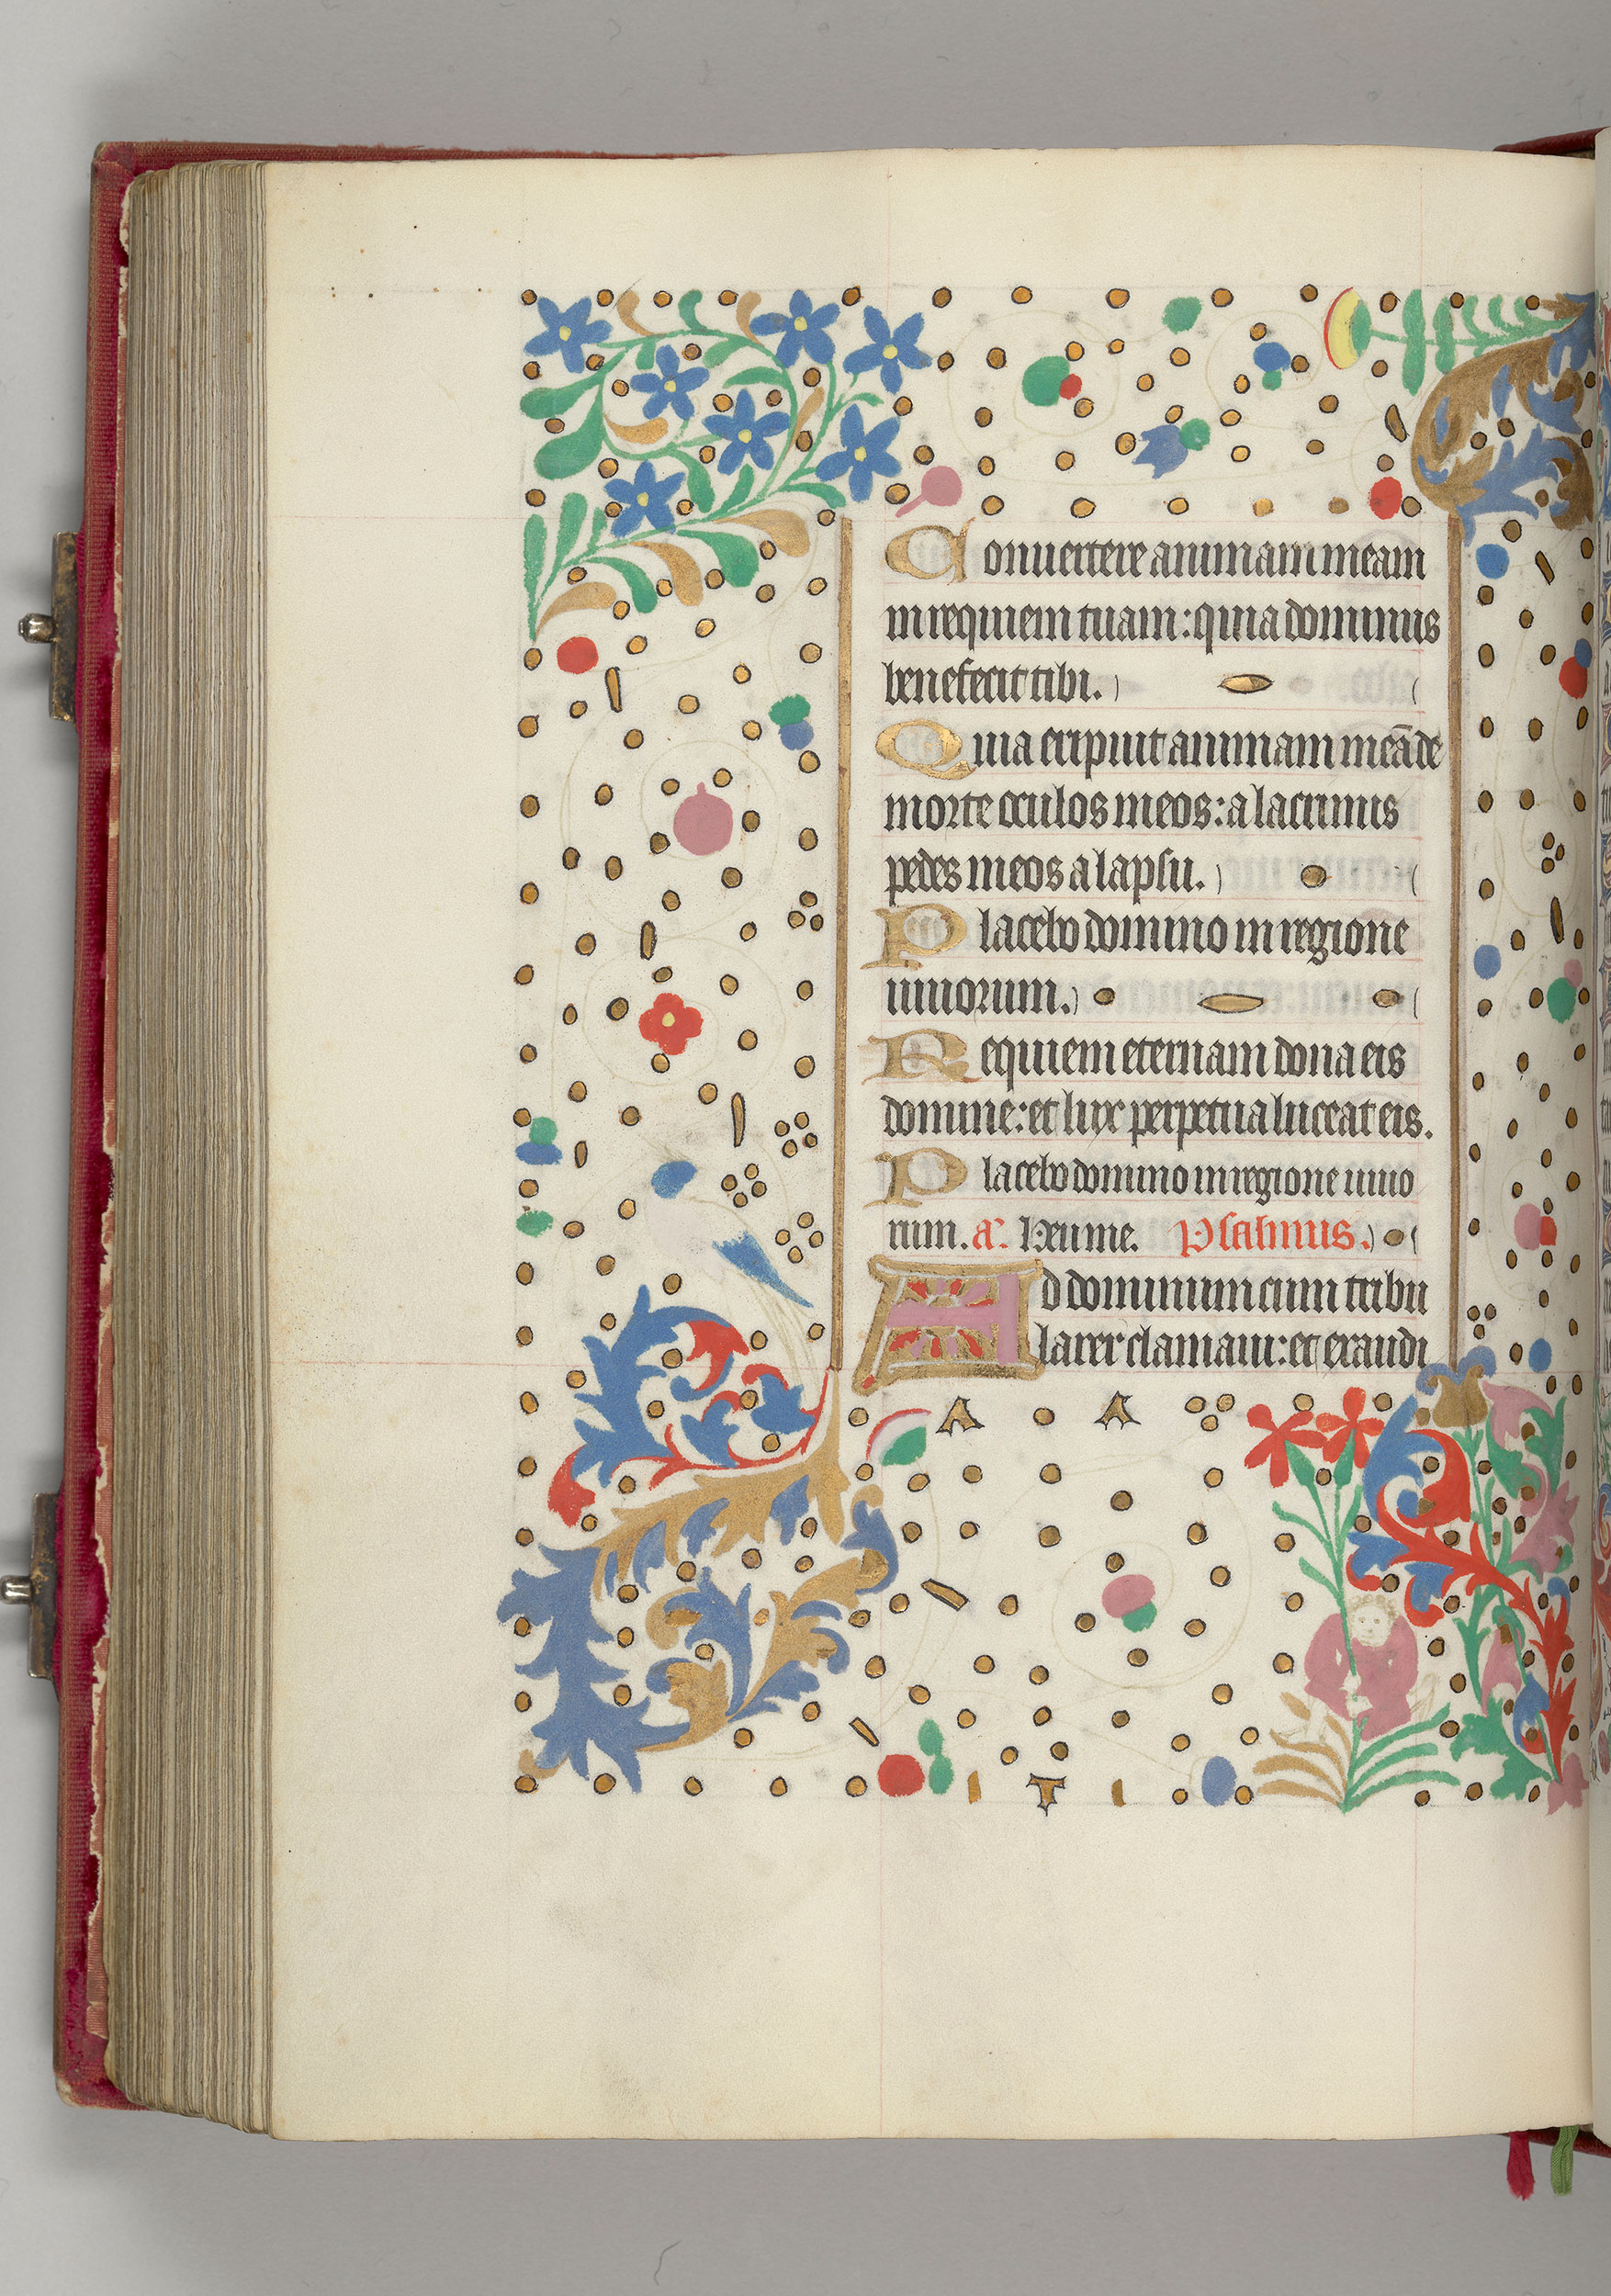 Conuertere animam meam
in requiem tuam: quia dominus
benefecit tibi.
Quia eripuit animam meā de
morte oculos meos: a lacrimis
pedes meos a lapsu.
Placebo domino in regione
uiuorum.
Requiem eternam dona eis
domine: et lux perpetua luceat eis.
Placebo domino in regione uiuo
rum. a. Heu me. Psalmus.
Ad dominum cum tribu
larer clamaui: et exaudi